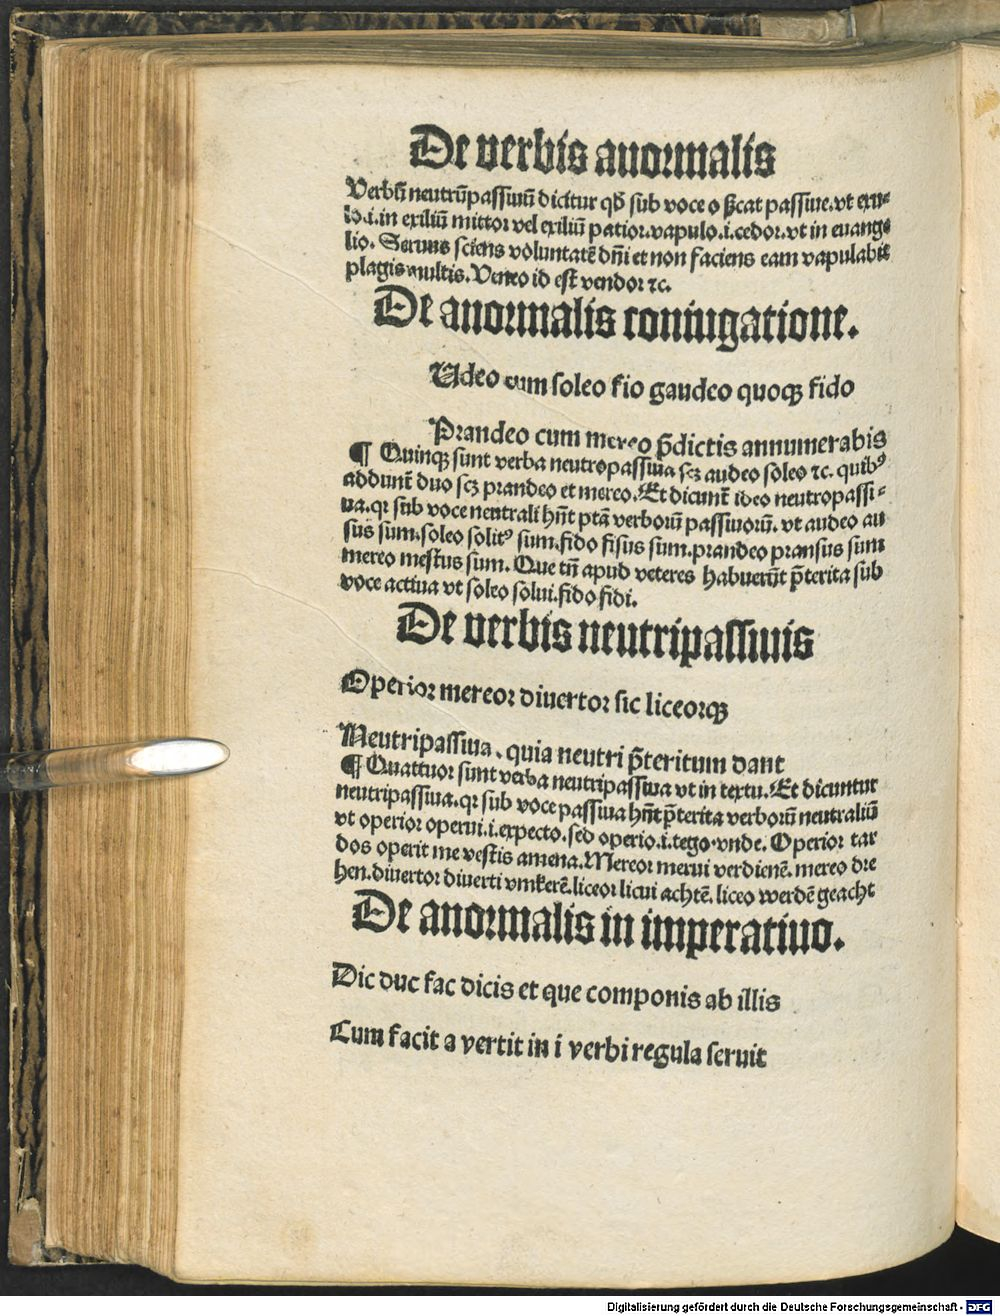 De verbis anormalis
Verbū neutrūpassiuū dicitur qđ sub voce o ſſicat passiue. vt exu-
lo .i. in exiliū mittor vel exiliū patior. vapulo .i. cedor. vt in euange
lio. Seruus sciens voluntatē dn̄i et non faciens eam vapulabit
plagis multis. Veneo id est vendor ꝛc.
De anormalis coniugatione.
Audeo cum soleo fio gaudeo quoqꝫ fido
Prandeo cum mereo p̄dictis annumerabis
¶ Quinqꝫ sunt verba neutropassiua scꝫ audeo soleo ꝛc. quibꝰ
addunt̄ duo scꝫ prandeo et mereo. Et dicunt̄ ideo neutropassi-
ua. qr sub voce neutrali hn̄t p̄tā verborū passiuorū. vt audeo au
sus sum. soleo solitꝰ sum. fido fisus sum. prandeo pransus sum
mereo mestus sum. Que tn̄ apud veteres habuerūt p̄terita sub
voce actiua vt soleo solui. fido fidi.
De verbis neutripassiuis
Operior mereor diuertor sic liceorqꝫ
Neutripassiua. quia neutri p̄teritum dant
¶ Quattuor sunt verba neutripassiua vt in textu. Et dicuntur
neutripassiua. qr sub voce passiua hn̄t p̄terita verborū neutraliū
vt operior operui .i. expecto. sed operio .i. tego. vnde. Operior tar
dos operit me vestis amena. Mereor merui verdienē. mereo dre
hen. diuertor diuerti vmkerē. liceor licui achtē. liceo werdē geacht
De anormalis in imperatiuo.
Dic duc fac dicis et que componis ab illis
Cum facit a vertit in i verbi regula seruit
Digitalisierung gefördert durch die Deutsche Forschungsgemeinschaft - DFG